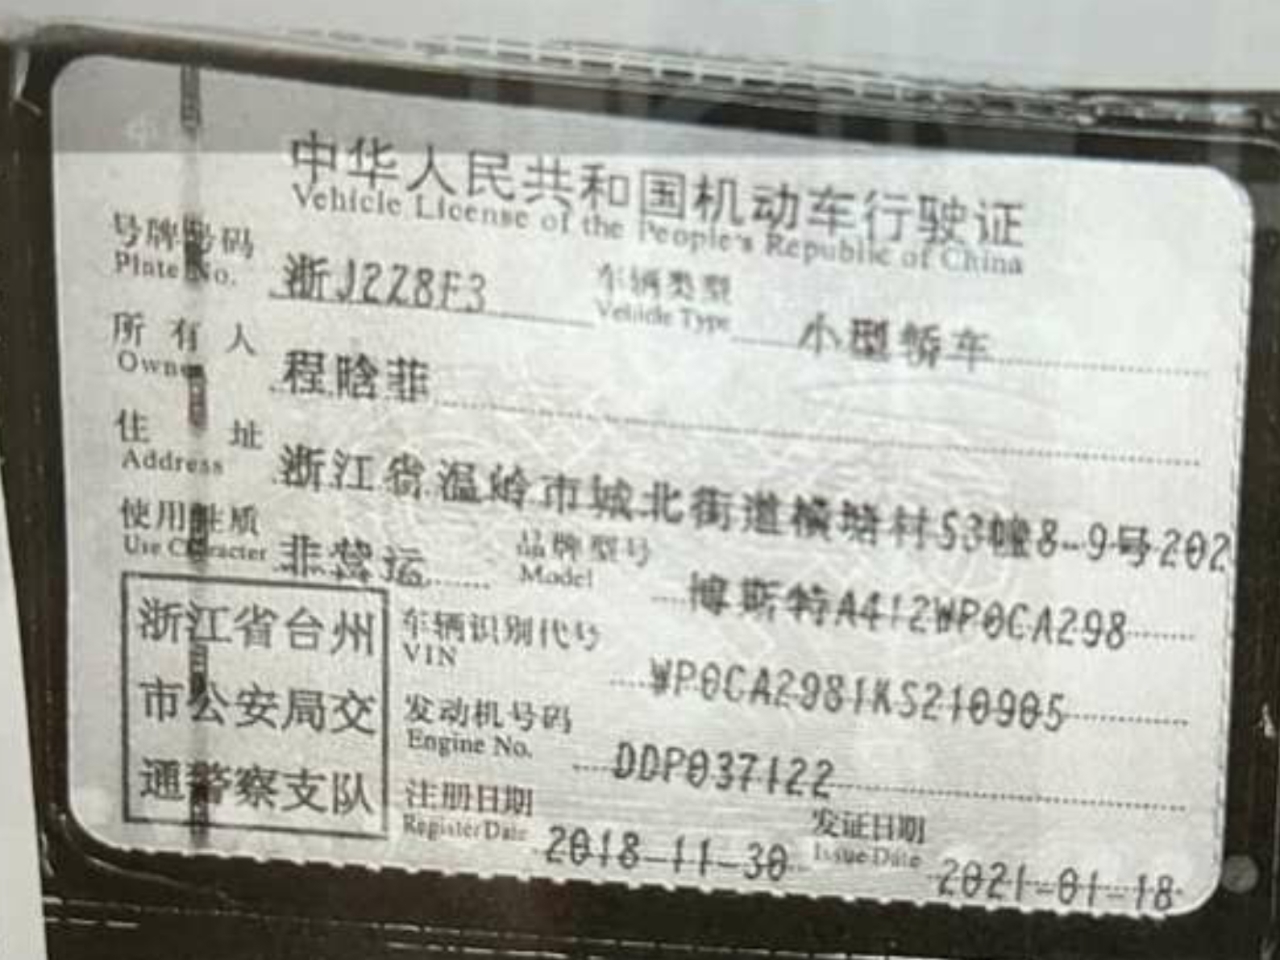 中华人民共和国机动车行驶证
Vehicle License of the People's Republic of China
号牌号码 浙J228F3 车辆类型 小型轿车
Plate No. Vehicle Type
所有人 程晗菲
Owner
住址 浙江省温岭市城北街道横塘村53幢8-9号202
Address
使用性质 非营运 品牌型号 博斯特A412WP0CA298
Use Character Model
浙江省台州
市公安局交
通警察支队
车辆识别代号 WP0CA2981KS210905
VIN
发动机号码 DDP037122
Engine No.
注册日期 2018-11-30 发证日期 2021-01-18
Register Date Issue Date